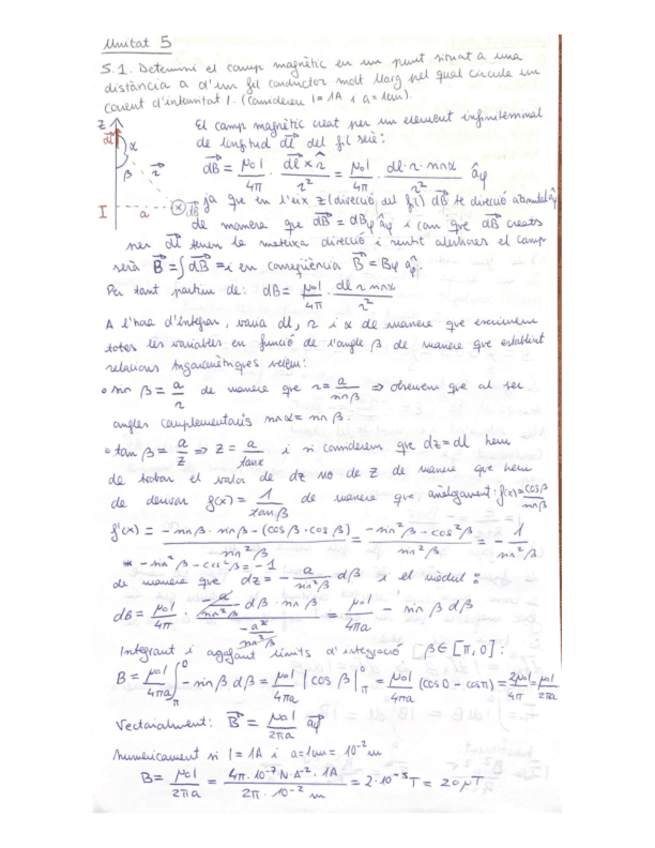 Unitat 5
5.1. Determini el camp magnètic en un punt situat a una
distància a d'un fil conductor molt llarg pel qual circula un
corrent d'intensitat I. (Considereu I = 1A i a = 1cm).
El camp magnètic creat per un element infinitesimal
de longitud dl del fil serà:
Z dl α β r I a dB
dB = μ₀I/4π · dl × r̂/r² = μ₀I/4π · dl · r · sin α/r² âφ
ja que en l'eix z (direcció del fil) dB té direcció azimutal âφ
de manera que dB = dBφ âφ i com que dB creats
per dl tenen la mateixa direcció i sentit aleshores el camp
serà B = ∫dB = i en conseqüència B = Bφ âφ.
Per tant partim de: dB = μ₀I/4π · dl r sin α/r²
A l'hora d'integrar, varia dl, r i α de manera que escriurem
totes les variables en funció de l'angle β de manera que establint
relacions trigonomètriques veiem:
• sin β = a/r de manera que r = a/sin β ⇒ observem que al ser
angles complementaris sin α = sin β.
• tan β = a/z ⇒ z = a/tan α i si considerem que dz = dl hem
de trobar el valor de dz no de z de manera que hem
de derivar f(x) = 1/tan β de manera que, anàlogament: f(x) = cos β/sin β
f'(x) = -sin β · sin β - (cos β · cos β)/sin² β = -sin² β - cos² β/sin² β = - 1/sin² β
* -sin² β - cos² β = -1
de manera que dz = - a/sin² β dβ i el mòdul:
dB = μ₀I/4π · -a/sin² β dβ · sin β / -a²/sin² β = μ₀I/4πa - sin β dβ
Integrant i agafant límits d'integració [β ∈ [π, 0]:
B = μ₀I/4πa ∫π⁰ -sin β dβ = μ₀I/4πa |cos β|π⁰ = μ₀I/4πa (cos 0 - cos π) = 2μ₀I/4π = μ₀I/2πa
Vectorialment: B = μ₀I/2πa âφ
Numèricament si I = 1A i a = 1cm = 10⁻² m
B = μ₀I/2πa = 4π · 10⁻⁷ N·A⁻² · 1A/2π · 10⁻² m = 2·10⁻⁵ T = 20 μT